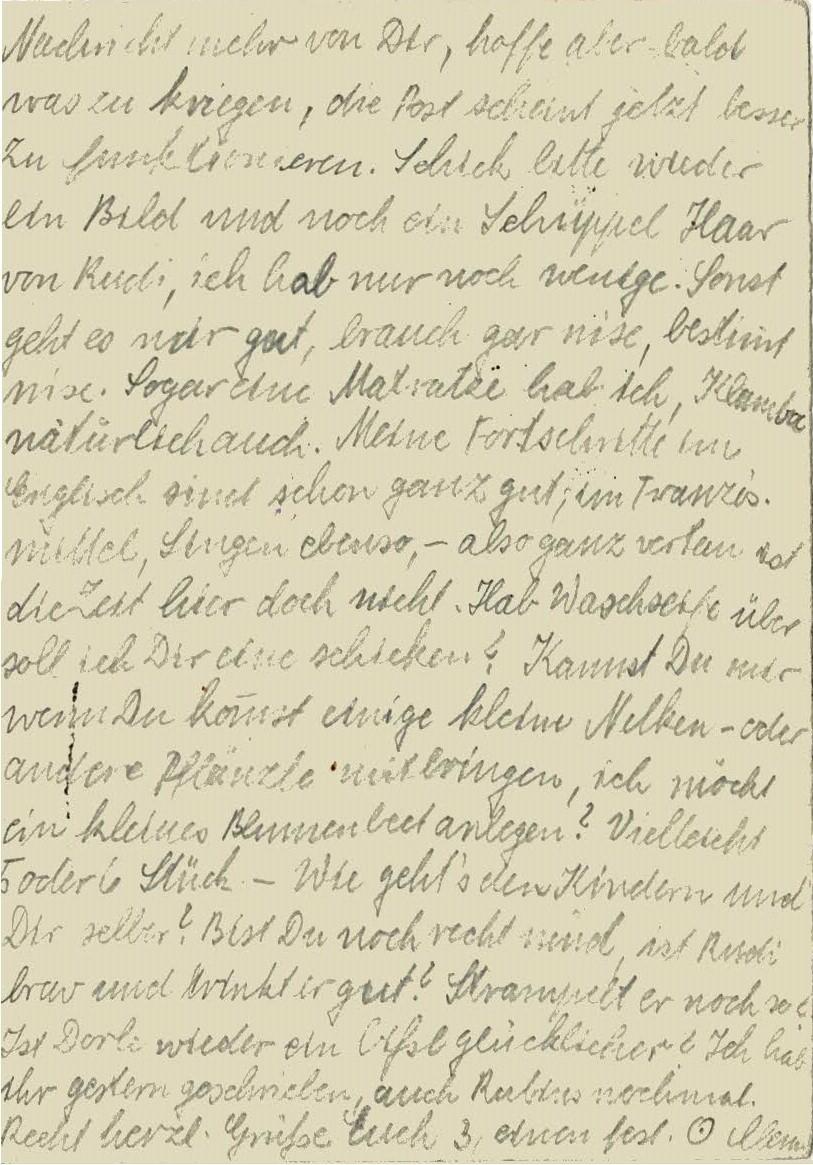 Nachricht mehr von Dir, hoffe aber bald
was zu kriegen, die Post scheint jetzt besser
zu funktionieren. Schick bitte wieder
ein Bild und noch ein Schüppel Haar
von Rudi, ich hab nur noch wenige. Sonst
geht es mir gut, brauch gar nix, bestimt
nix. Sogar eine Matratze hab ich,
natürlich auch. Meine Fortschritte im
Englisch sind schon ganz gut, im Französ.
mittel, Singen ebenso, – also ganz vertan ist
die Zeit hier doch nicht. Hab Waschseife über
soll ich Dir eine schicken? Kannst Du mir
wenn Du kom̄st einige kleine Nelken – oder
andere Pflänzle mitbringen, ich möcht
ein kleines Blumenbeet anlegen? Vielleicht
5 oder 6 Stück – Wie geht's den Kindern und
Dir selber? Bist Du noch recht müd, ist Rudi
brav und trinkt er gut? Strampelt er noch so?
Ist Dorle wieder ein bißl glücklicher? Ich hab
ihr gestern geschrieben, auch Rubius nochmal.
Recht herzl. Grüße Euch 3, einen fest.